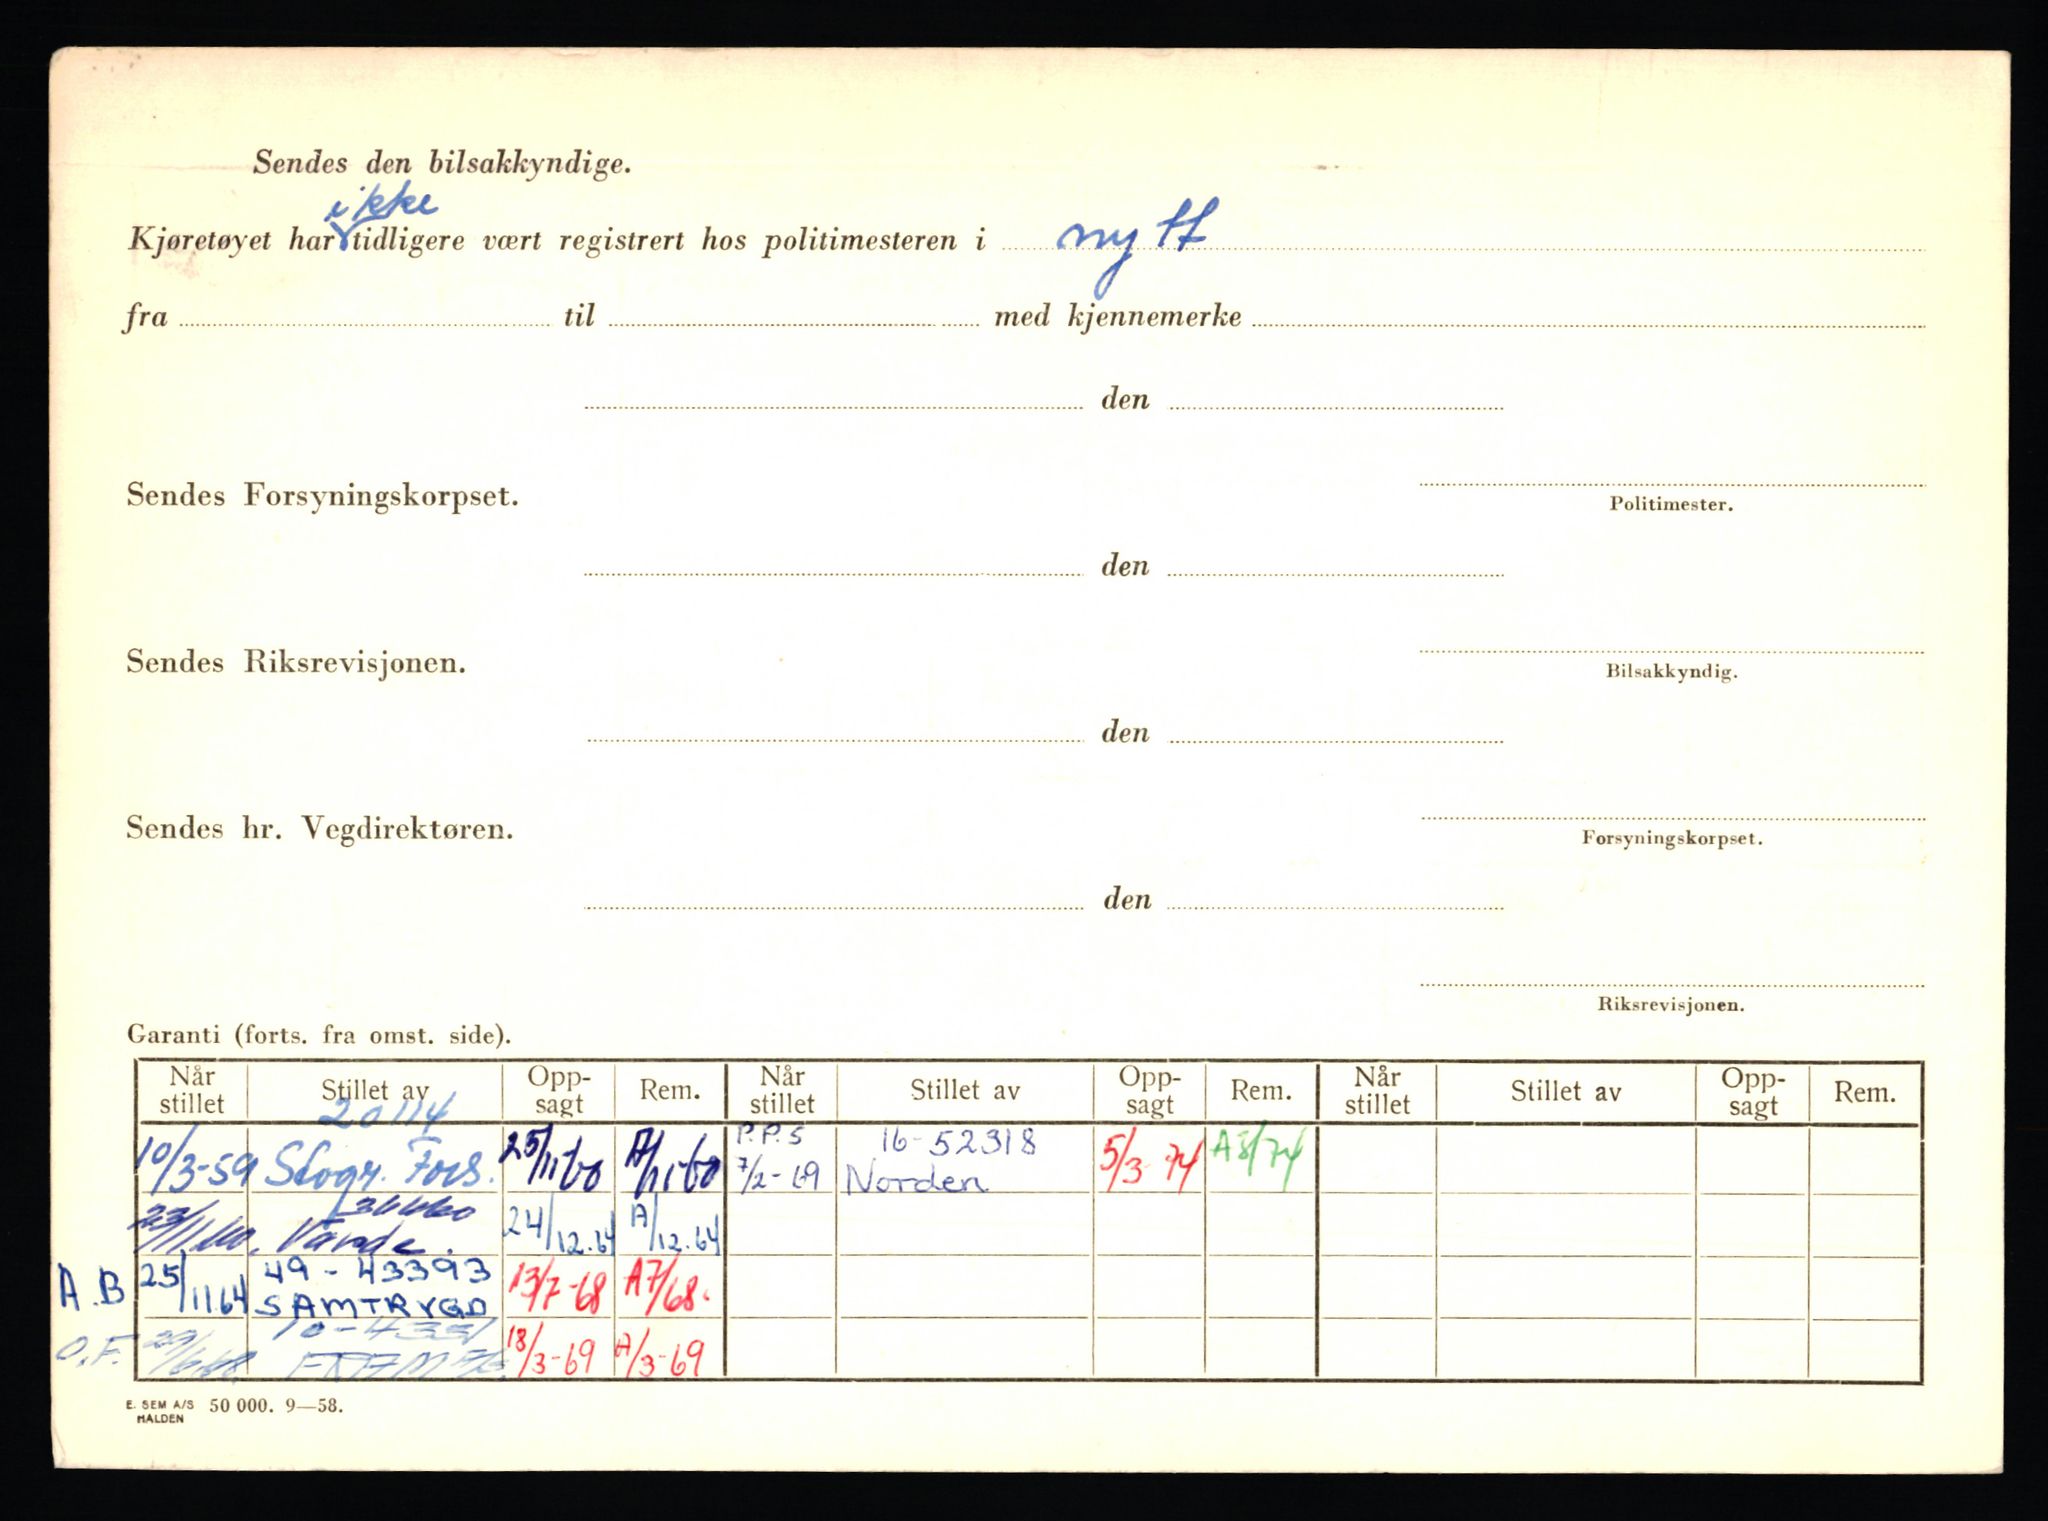 Sendes den bilsakkyndige.
ikke
Kjøretøyet har tidligere vært registrert hos politimesteren i nytt
fra til med kjennemerke
den
Sendes Forsyningskorpset.
Politimester.
den
Sendes Riksrevisjonen.
Bilsakkyndig.
den
Sendes hr. Vegdirektøren.
Forsyningskorpset.
den
Riksrevisjonen.
Garanti (forts. fra omst. side).
Når stillet Stillet av Opp- sagt Rem. Når stillet Stillet av Opp- sagt Rem. Når stillet Stillet av Opp- sagt Rem.
20114
10/3-59 25/11-60 A/11-60 P.P.S 16-52318 5/3-74 A3/74
7/2-69 Norden
36660
23/11.60. Varde. 24/12.64 A/12.64
A.B 25/11.64 49-43393 13/7-68 A7/68.
SAMTRYGD
10-4331
O.F. 18/3-69 A/3-69
E. SEM A/S HALDEN 50 000. 9—58.